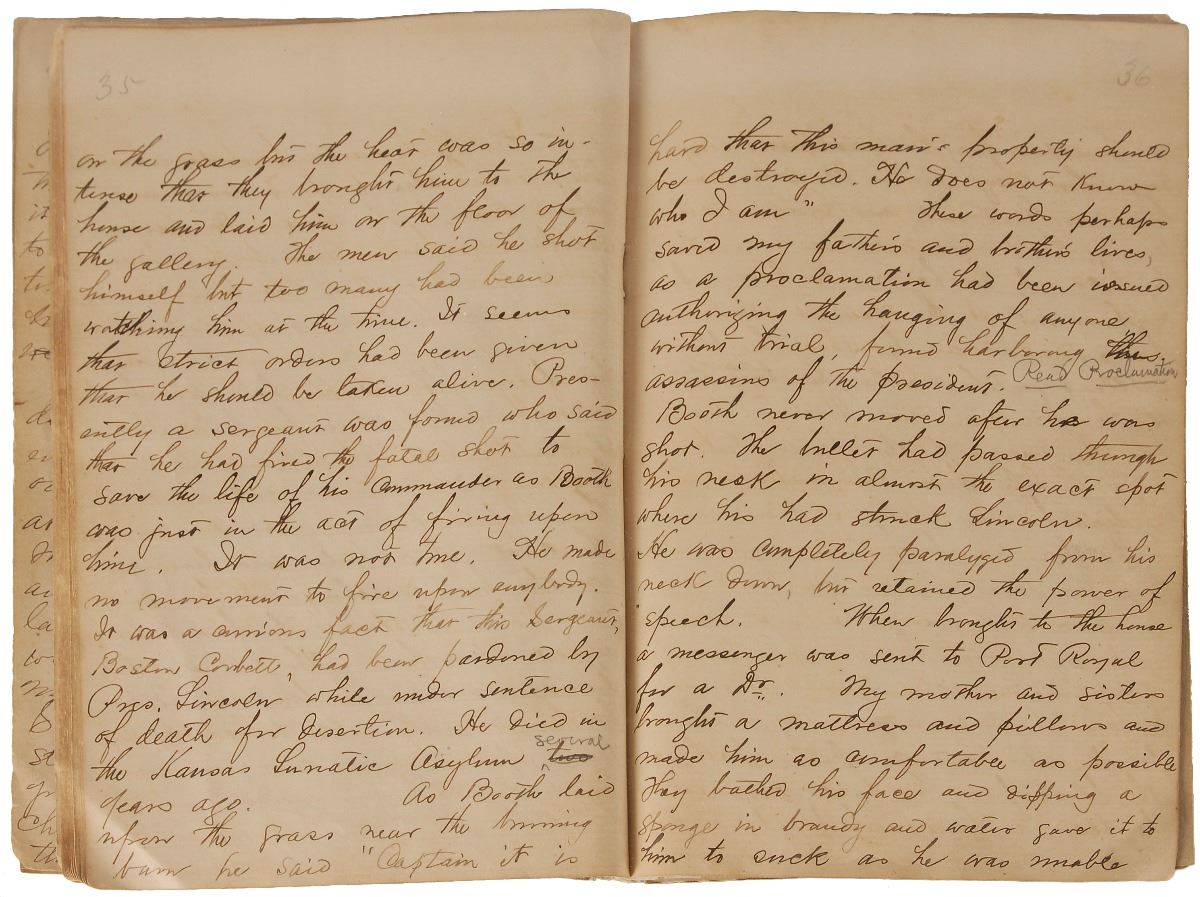 35
on the grass but the heat was so in-
tense that they brought him to the
house and laid him on the floor of
the gallery. The men said he shot
himself but too many had been
watching him at the time. It seems
that strict orders had been given
that he should be taken alive. Pres-
ently a sergeant was found who said
that he had fired the fatal shot to
save the life of his commander as Booth
was just in the act of firing upon
him. It was not true. He made
no movement to fire upon anybody.
It was a curious fact that this Sergeant,
Boston Corbett, had been pardoned by
Pres. Lincoln while under sentence
of death for desertion. He died in
several
the Kansas Lunatic Asylum two
years ago. As Booth laid
upon the grass near the burning
barn he said "Captain it is
36
hard that this man's property should
be destroyed. He does not know
who I am" These words perhaps
saved my father's and brother's lives,
as a proclamation had been issued
authorizing the hanging of anyone
without trial, found harboring the
assassins of the president. Read Proclamation
Booth never moved after he was
shot. The bullet had passed through
his neck in almost the exact spot
where his had struck Lincoln.
He was completely paralyzed from his
neck down, but retained the power of
speech. When brought to the house
a messenger was sent to Port Royal
for a Dr. My mother and sisters
brought a mattress and pillows and
made him as comfortable as possible
They bathed his face and dipping a
sponge in brandy and water gave it to
him to suck as he was unable